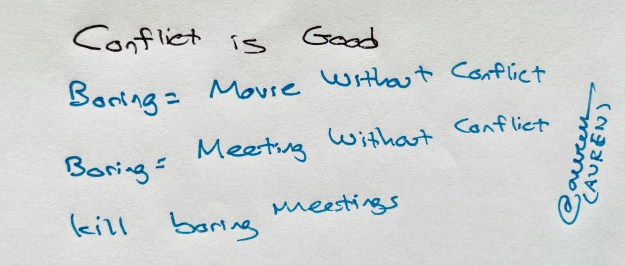 Conflict is Good
Boring = Movie Without Conflict
Boring = Meeting Without Conflict
kill boring Meetings